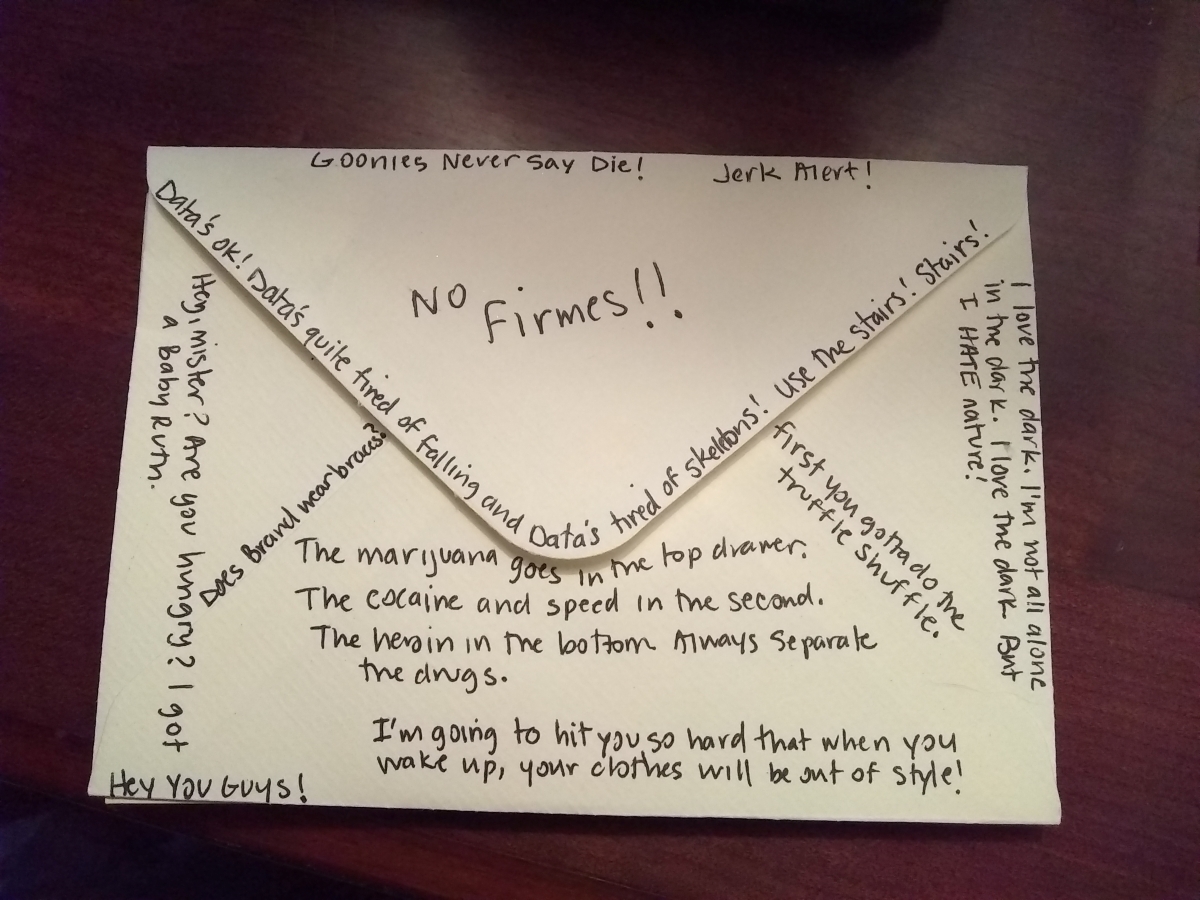 Goonies Never Say Die!
Jerk Alert!
Data's ok! Data's quite tired of falling and Data's tired of skeletons! Use the stairs! Stairs!
No Firmes!!
Hey, mister? Are you hungry? I got
a Baby Ruth.
Does Brand wear braces?
First you gotta do the
truffle shuffle.
I love the dark. I'm not all alone
in the dark. I love the dark. But
I HATE nature!
The marijuana goes in the top drawer.
The cocaine and speed in the second.
The heroin in the bottom Always separate
the drugs.
I'm going to hit you so hard that when you
wake up, your clothes will be out of style!
Hey You Guys!